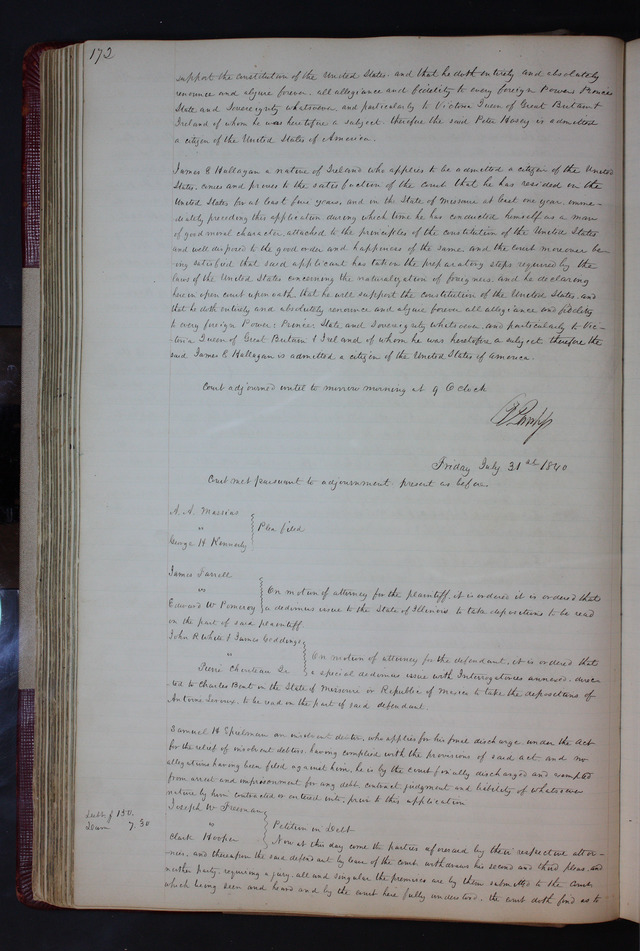 172
support the constitution of the United States. and that he doth entirely and absolutely
renounce and abjure forever. all allegiance and fidelity to every foreign Power Prince
State and Sovereignty whatsoever, and particularly to Victoria Queen of Great Britain &
Ireland of whom he was heretofore a subject. therefore the said Peter is admitted
a citizen of the United States of America.
James E Hallagan a native of Ireland who applies to be admitted a citizen of the United
States. comes and proves to the satisfaction of the court that he has resided in the
United States for at least five years, and in the State of Missouri at least one year. imme-
diately preceding this application during which time he has conducted himself as a man
of good moral character, attached to the principles of the constitution of the United States
and well disposed to the good order and happiness of the same. and the court moreover be-
ing satisfied that said applicant has taken the preparatory steps required by the
laws of the United States concerning the naturalization of foreigners. and he declaring
here in open court upon oath that he will support the constitution of the United States. and
that he doth entirely and absolutely renounce and abjure forever all allegiance and fidelity
to every foreign Power, Prince, State and Sovereignty whatsoever. and particularly to Vic-
toria Queen of Great Britain & Ireland of whom he was heretofore a subject therefore the
said James E Hallagan is admitted a citizen of the United States of America.
Court adjourned until to morrow morning at 9 O clock
Friday July 31st 1840
Court met pursuant to adjournment. present as before
A. A. Massias
vs
Plea filed
George H Kennerly
James Farrell
vs
On motion of attorney for the plaintiff, it is ordered it is ordered that
Edward W Pomeroy
a dedimus issue to the State of Illinois to take depositions to be read
on the part of said plaintiff.
John R White & James Geddings
vs
On motion of attorney for the defendant, it is ordered that
Pierre Chouteau Jr
a special dedimus issue with Interrogatories annexed. direc-
ted to Charles Bent in the State of Missouri or Republic of Mexico to take the depositions of
Antoine to be read on the part of said defendant.
Samuel H Spielman an insolvent debtor, who applies for his final discharge under the Act
for the relief of insolvent debtors, having complied with the provisions of said act. and no
allegations having been filed against him, he is by the court finally discharged and exempted
from arrest and imprisonment for any debt. contract, judgment and liability of whatsoever
nature by him contracted or entered into, prior to this application
Joseph W Freeman
vs
Petition in Debt
Clark Hooper
Now at this day come the parties aforesaid by their respective attor-
Debt $ 130.
Dam 7.30
nies, and thereupon the said defendant by leave of the court withdraws his second and third pleas. and
neither party requiring a jury, all and singular the premises are by them submitted to the court
which being seen and heard and by the court here fully understood. the court doth find as to